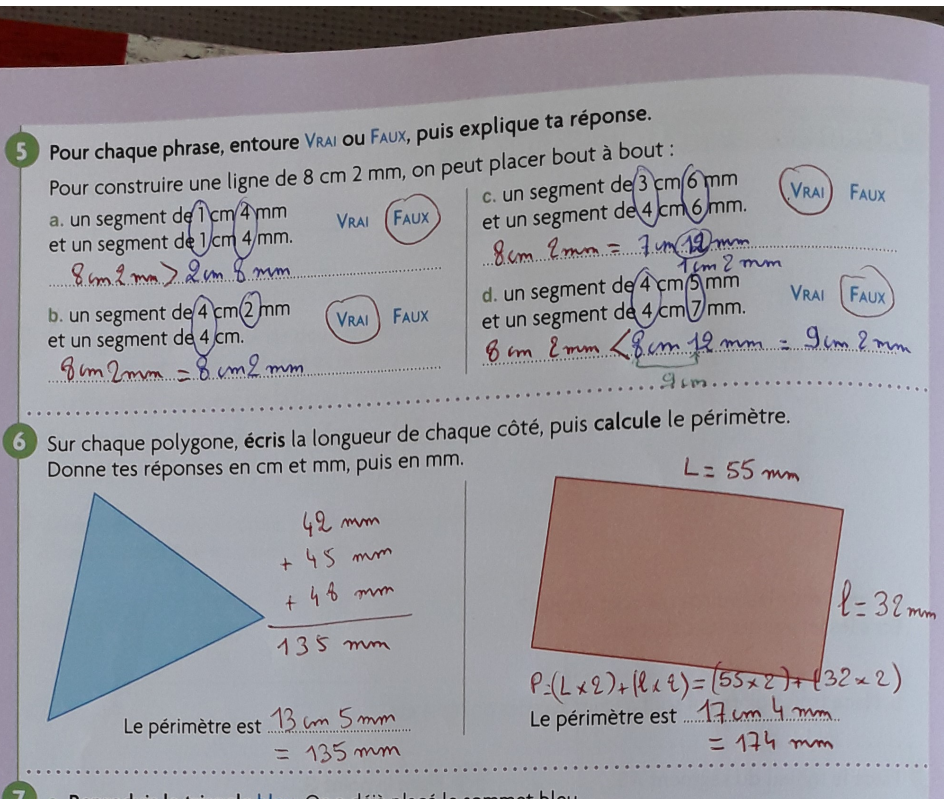 5 Pour chaque phrase, entoure VRAI ou FAUX, puis explique ta réponse.
Pour construire une ligne de 8 cm 2 mm, on peut placer bout à bout :
a. un segment de 1 cm 4 mm
et un segment de 1 cm 4 mm.
VRAI FAUX
8 cm 2 mm > 2 cm 8 mm
b. un segment de 4 cm 2 mm
et un segment de 4 cm.
VRAI FAUX
8 cm 2 mm = 8 cm 2 mm
c. un segment de 3 cm 6 mm
et un segment de 4 cm 6 mm.
VRAI FAUX
8 cm 2 mm = 7 cm 12 mm
1 cm 2 mm
d. un segment de 4 cm 5 mm
et un segment de 4 cm 7 mm.
VRAI FAUX
8 cm 2 mm < 8 cm 12 mm = 9 cm 2 mm
9 cm
6 Sur chaque polygone, écris la longueur de chaque côté, puis calcule le périmètre.
Donne tes réponses en cm et mm, puis en mm.
42 mm
+ 45 mm
+ 48 mm
135 mm
Le périmètre est 13 cm 5 mm
= 135 mm
L = 55 mm
l = 32 mm
P = (L x 2) + (l x 2) = (55 x 2) + (32 x 2)
Le périmètre est 17 cm 4 mm
= 174 mm
7